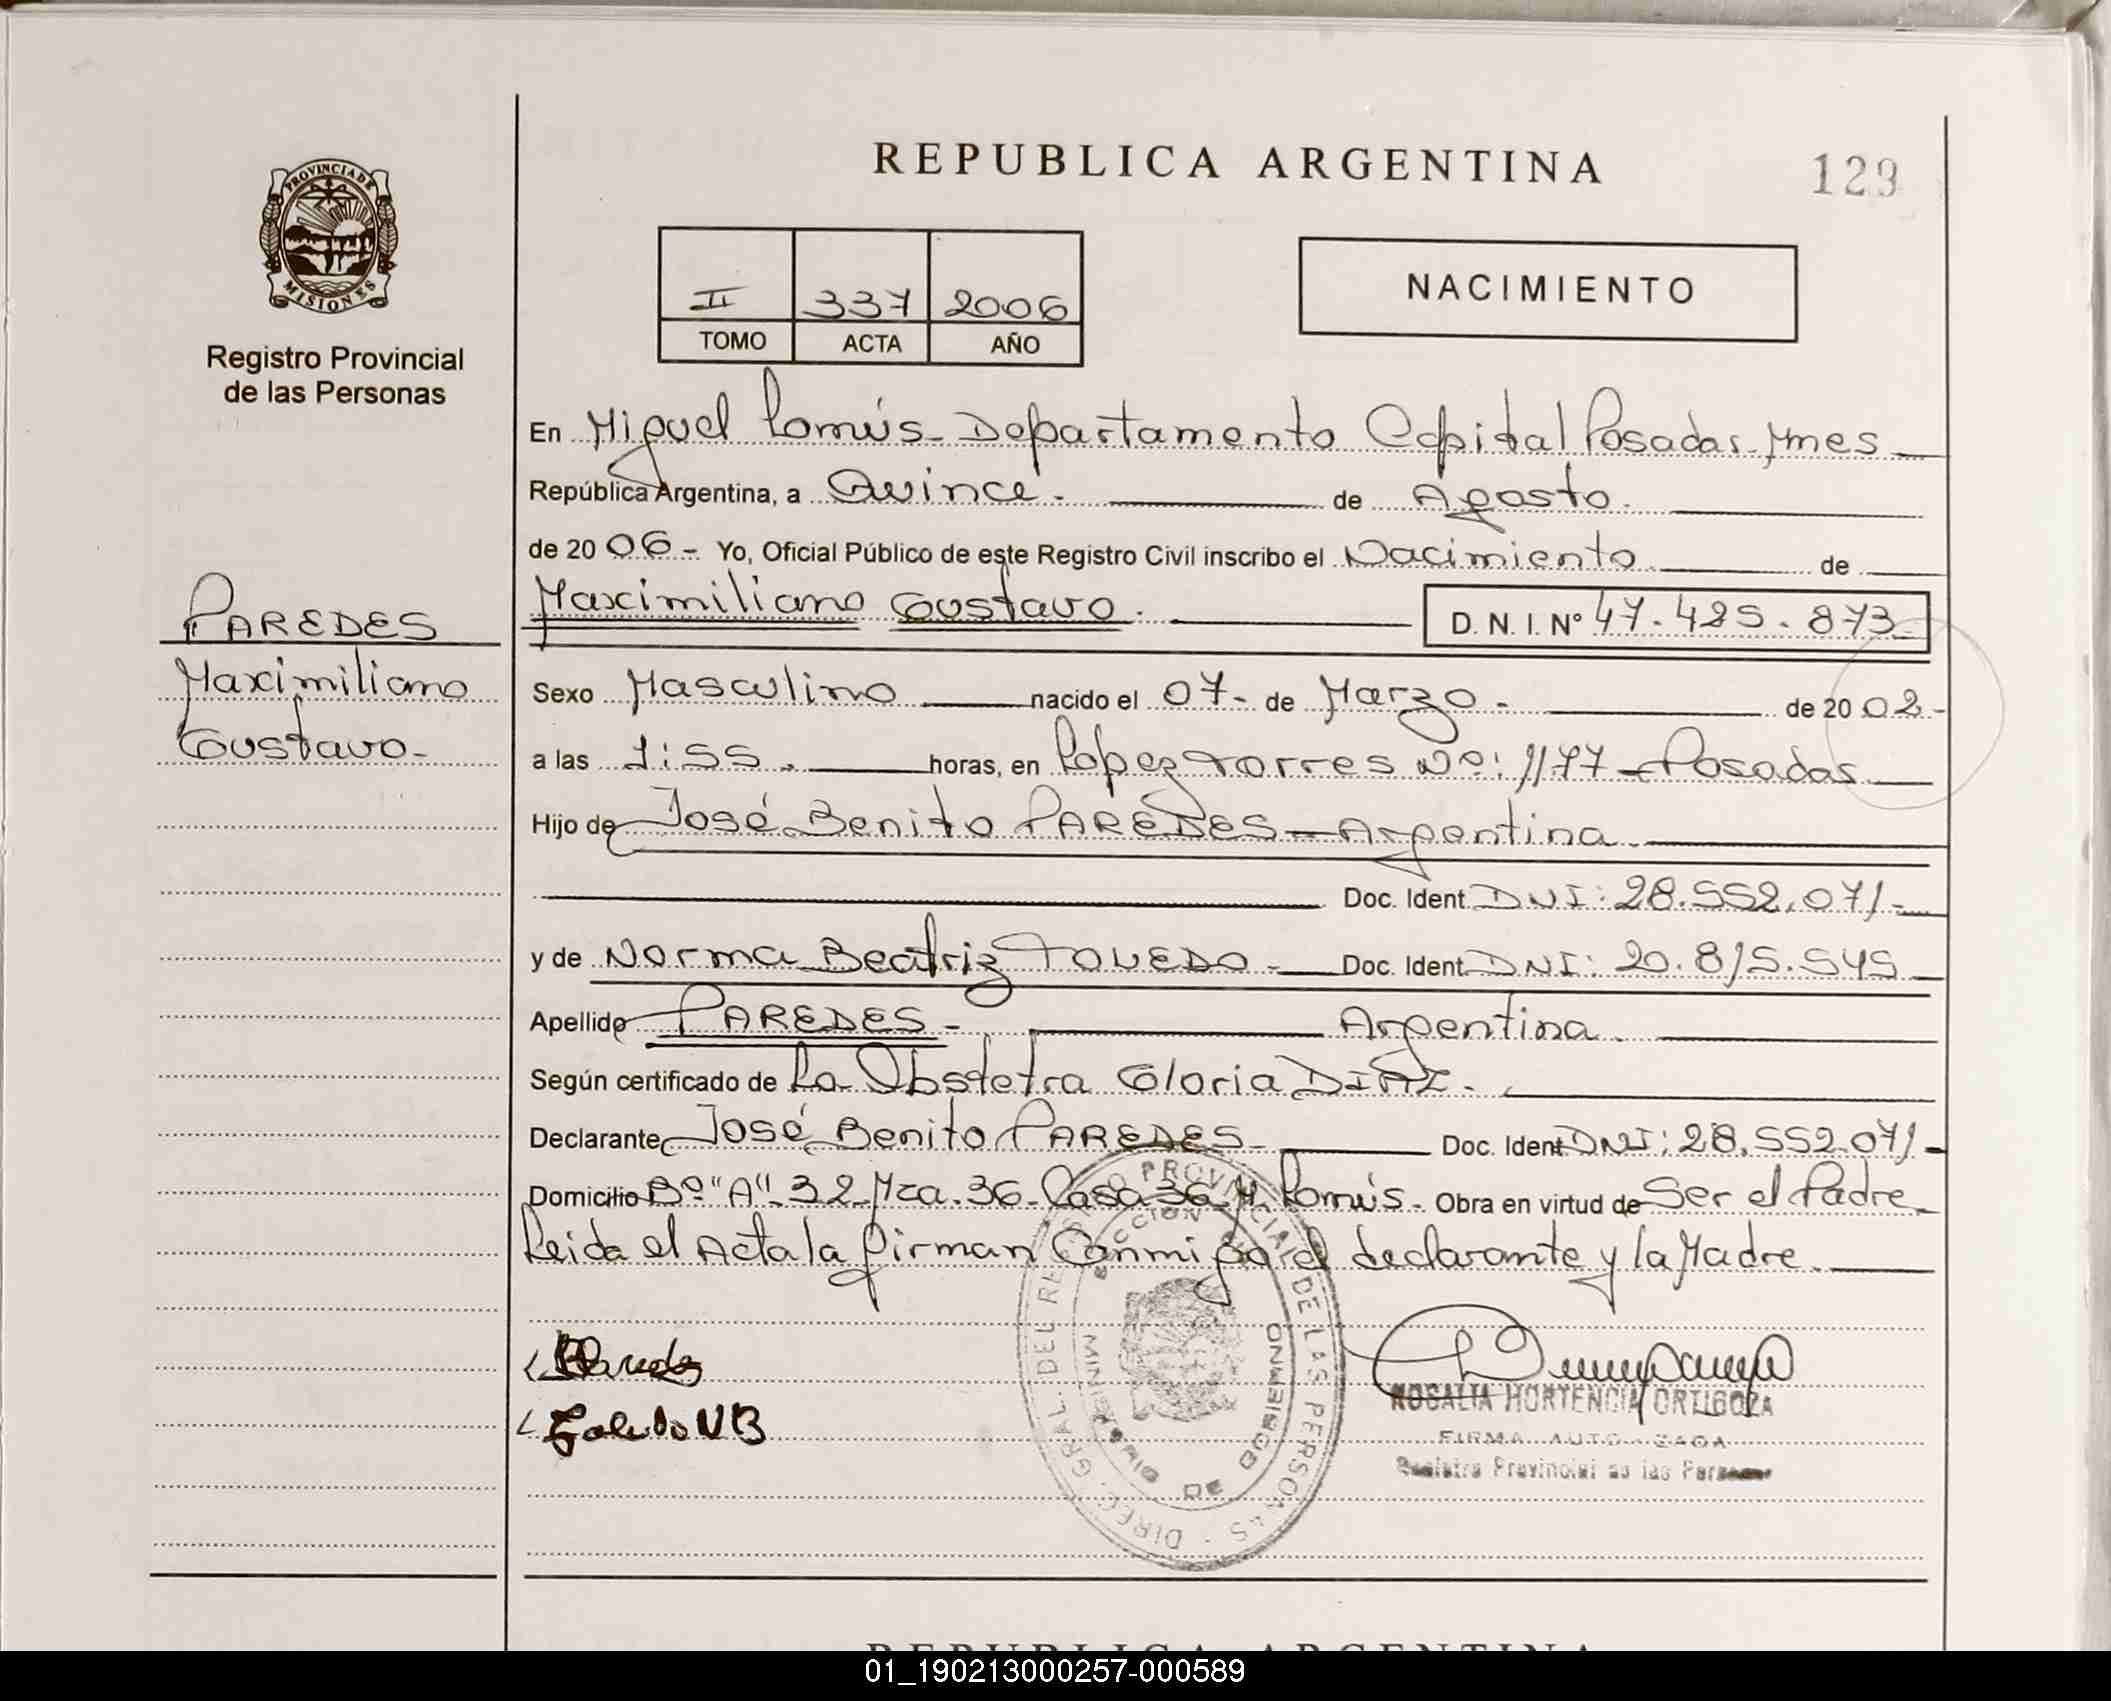 REPUBLICA ARGENTINA
129
PROVINCIA DE
MISIONES
Registro Provincial
de las Personas
II 337 2006
TOMO ACTA AÑO
NACIMIENTO
En Miguel Lanús - Departamento Capital Posadas - Mnes
República Argentina, a Quince - de Agosto.
de 20 06 - Yo, Oficial Público de este Registro Civil inscribo el Nacimiento de
PAREDES
Maximiliano
Gustavo -
Maximiliano Gustavo. D. N. I. Nº 47.425.873
Sexo Masculino nacido el 07 - de Marzo - de 20 02 -
a las 1:55 . horas, en López Torres Nº: 1177 - Posadas
Hijo de José Benito PAREDES - Argentina
Doc. Ident. DNI: 28.552.071 -
y de Norma Beatriz TOLEDO - Doc. Ident. DNI: 20.815.545
Apellido PAREDES - Argentina.
Según certificado de La Obstetra Gloria DIAZ.
Declarante José Benito PAREDES - Doc. Ident DNI: 28.552.071 -
Domicilio Bº "A" 32 Mza. 36 - Casa 36 M. Lanús - Obra en virtud de Ser el Padre
Leida el Acta la firman Conmigo el declarante y la Madre.
Toledo N B
DIREC. GRAL. DEL REGISTRO PROVINCIAL DE LAS PERSONAS
ROSALIA HORTENCIA ORTIGOZA
FIRMA AUTORIZADA
Registro Provincial de las Personas
REPUBLICA ARGENTINA
01_190213000257-000589